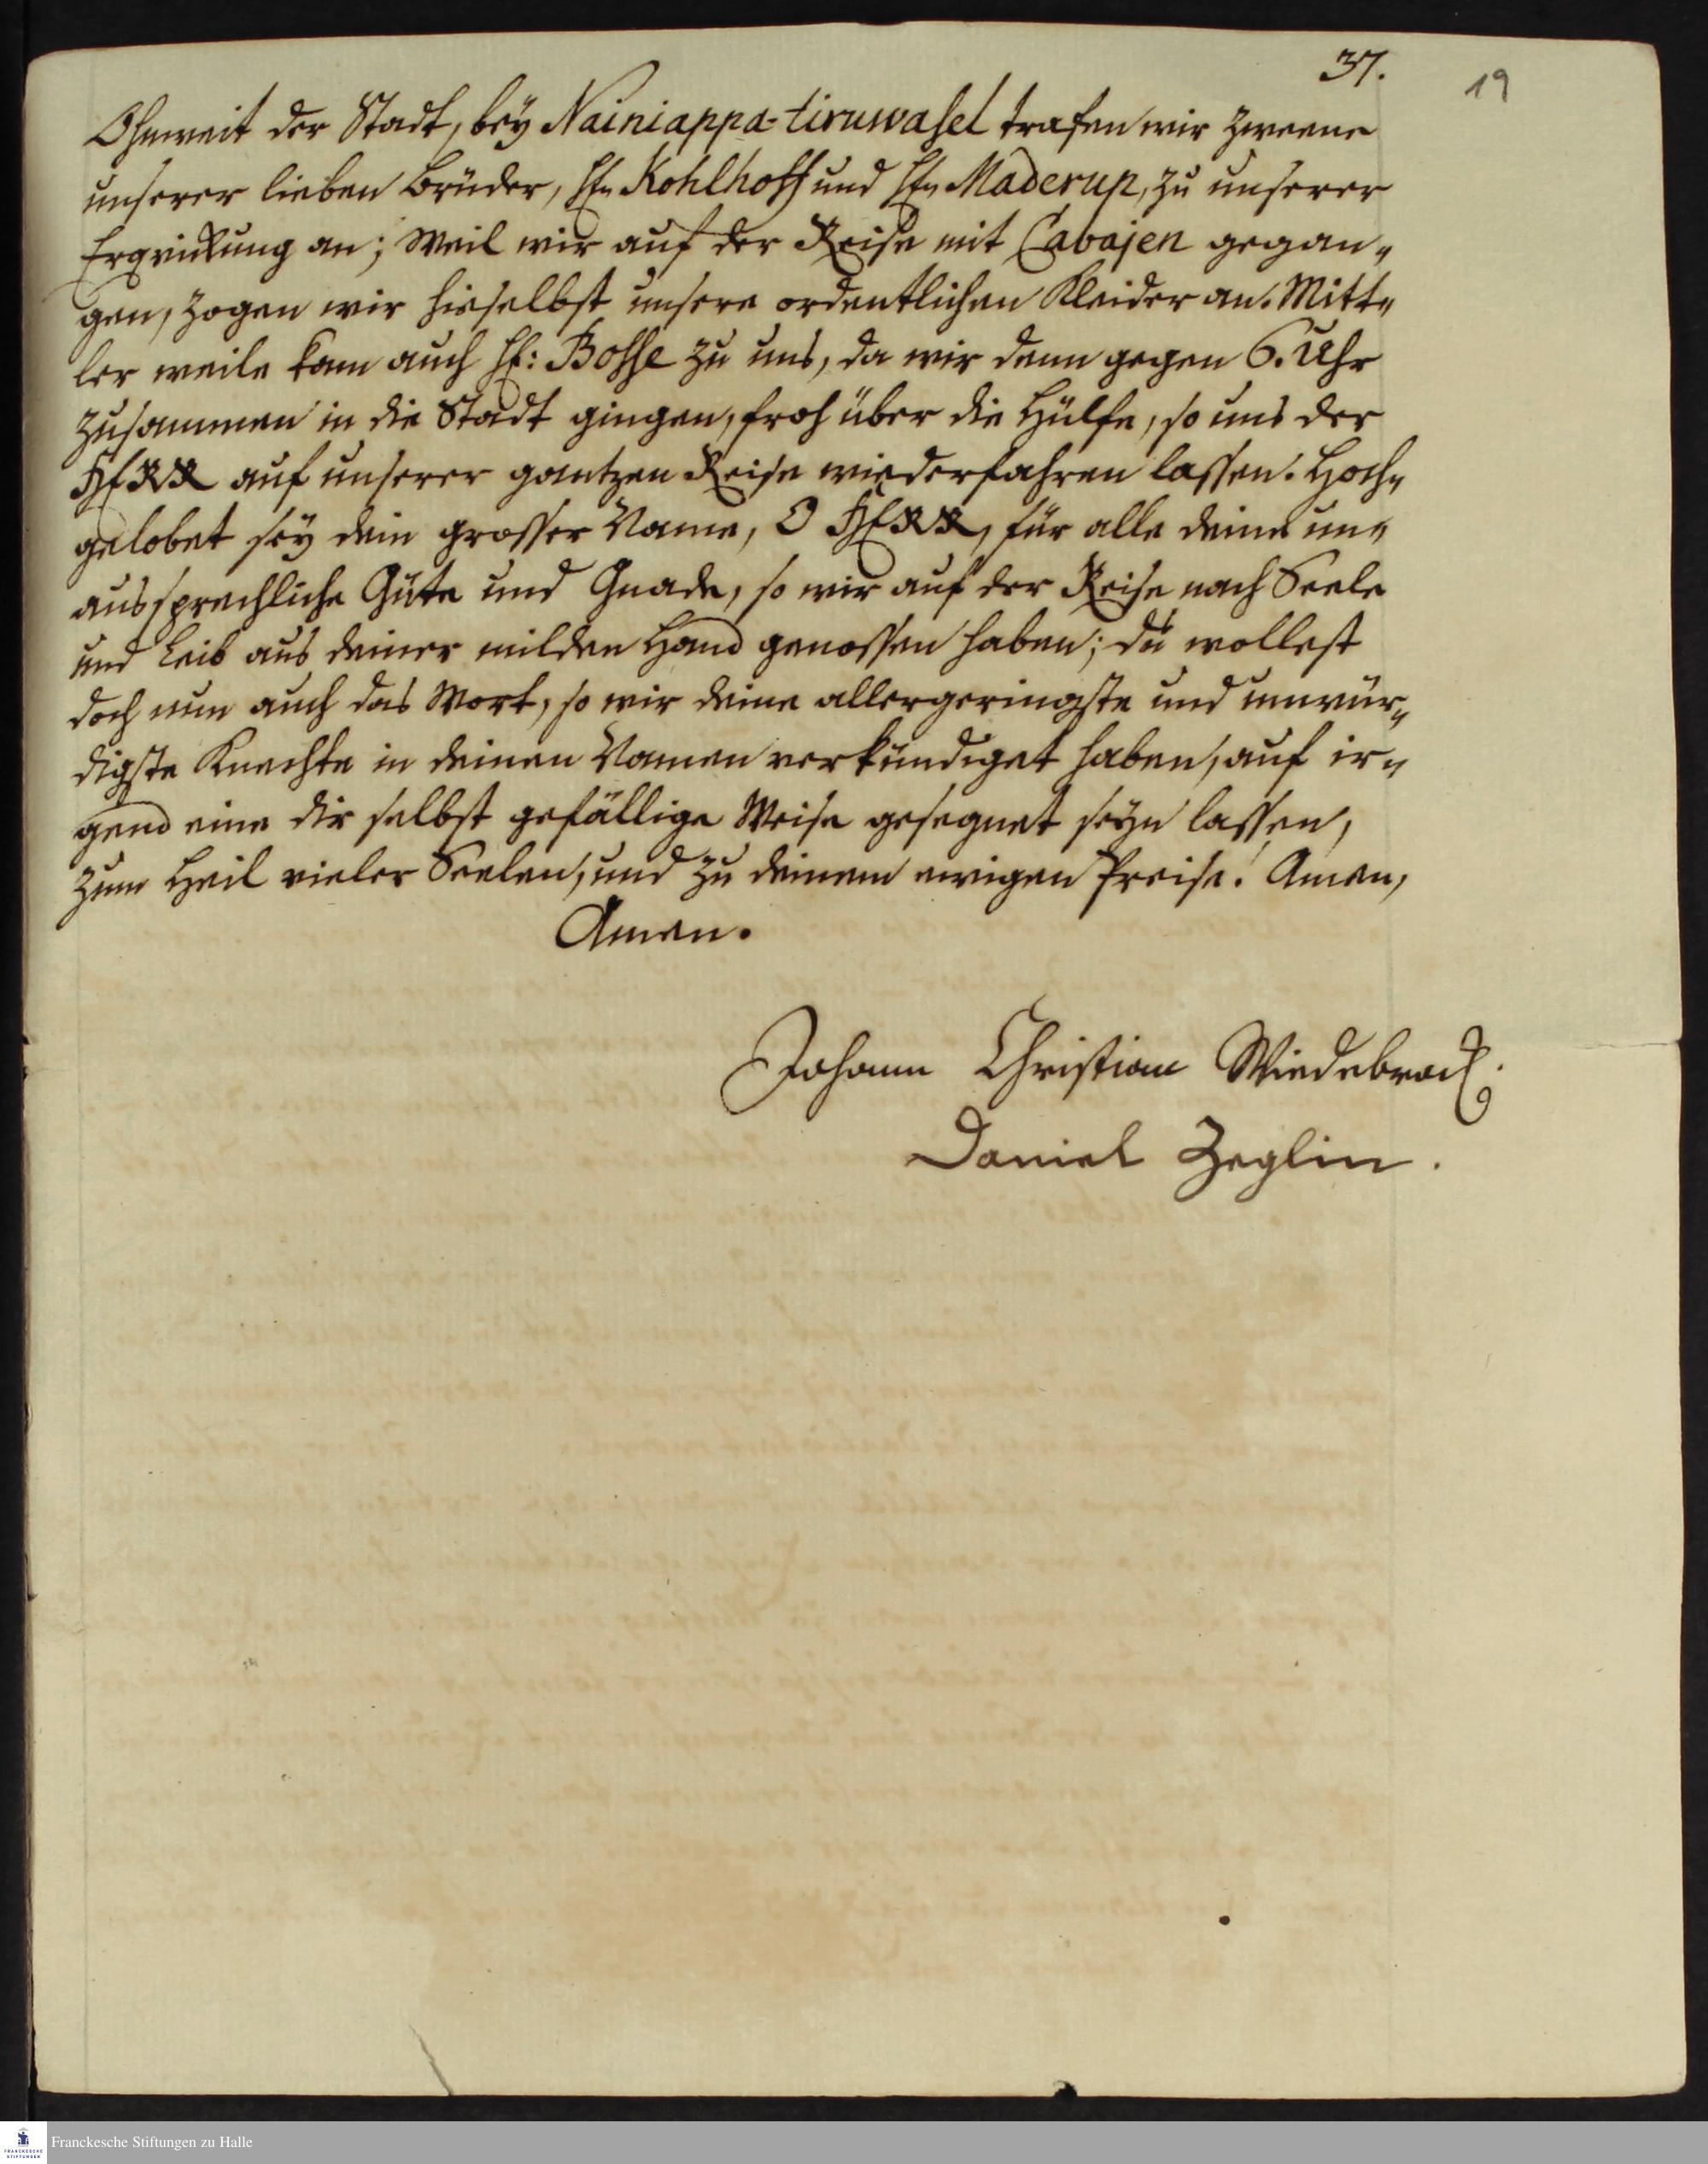 37.
19
Ohnweit der Stadt, bey Nainiappa-tiruwasel trafen wir zweene
unserer lieben Brüder, Hn. Kohlhoff und Hn. Maderup, zu unserer
Erqvickung an; Weil wir auf der Reise mit Cabajen gegan-
gen, zogen wir hieselbst unsere ordentlichen Kleider an. Mitt-
ler weile kam auch H: Bosse zu uns, da wir denn gegen 6. Uhr
zusammen in die Stadt gingen, froh über die Hülfe, so uns der
HERR auf unserer gantzen Reise wiederfahren lassen. Hoch-
gelobet sey dein grosser Name, O HERR, für alle deine un-
aussprechliche Güte und Gnade, so wir auf der Reise nach Seele
und Leib aus deiner milden Hand genossen haben; du wollest
doch nun auch das Wort, so wir deine allergeringste und unwür-
digste Knechte in deinen Namen verkündiget haben, auf ir-
gend eine dir selbst gefällige Weise gesegnet seyn lassen,
zum Heil vieler Seelen, und zu deinem ewigen Preise! Amen,
Amen.
Johann Christian Wiedebrock.
Daniel Zeglin.
FRANCKESCHE
STIFTUNGEN
Franckesche Stiftungen zu Halle